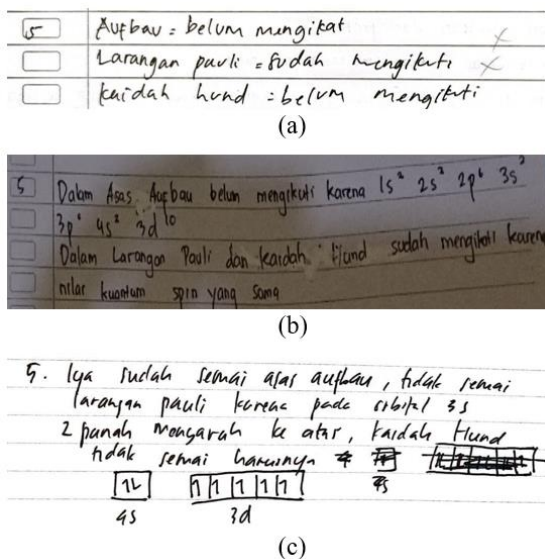 5 Aufbau = belum mengikat
Larangan pauli = sudah mengikuti
kaidah hund = belum mengikuti
(a)
5 Dalam Asas Aufbau belum mengikuti karena 1s² 2s² 2p⁶ 3s²
3p⁶ 4s² 3d¹⁰
Dalam Larangan Pauli dan kaidah Hund sudah mengikuti karena
nilai kuantum spin yang sama
(b)
5. Iya sudah sesuai asas aufbau, tidak sesuai
larangan pauli karena pada orbital 3s
2 panah mengarah ke atas, kaidah Hund
tidak sesuai harusnya
4s 3d
(c)